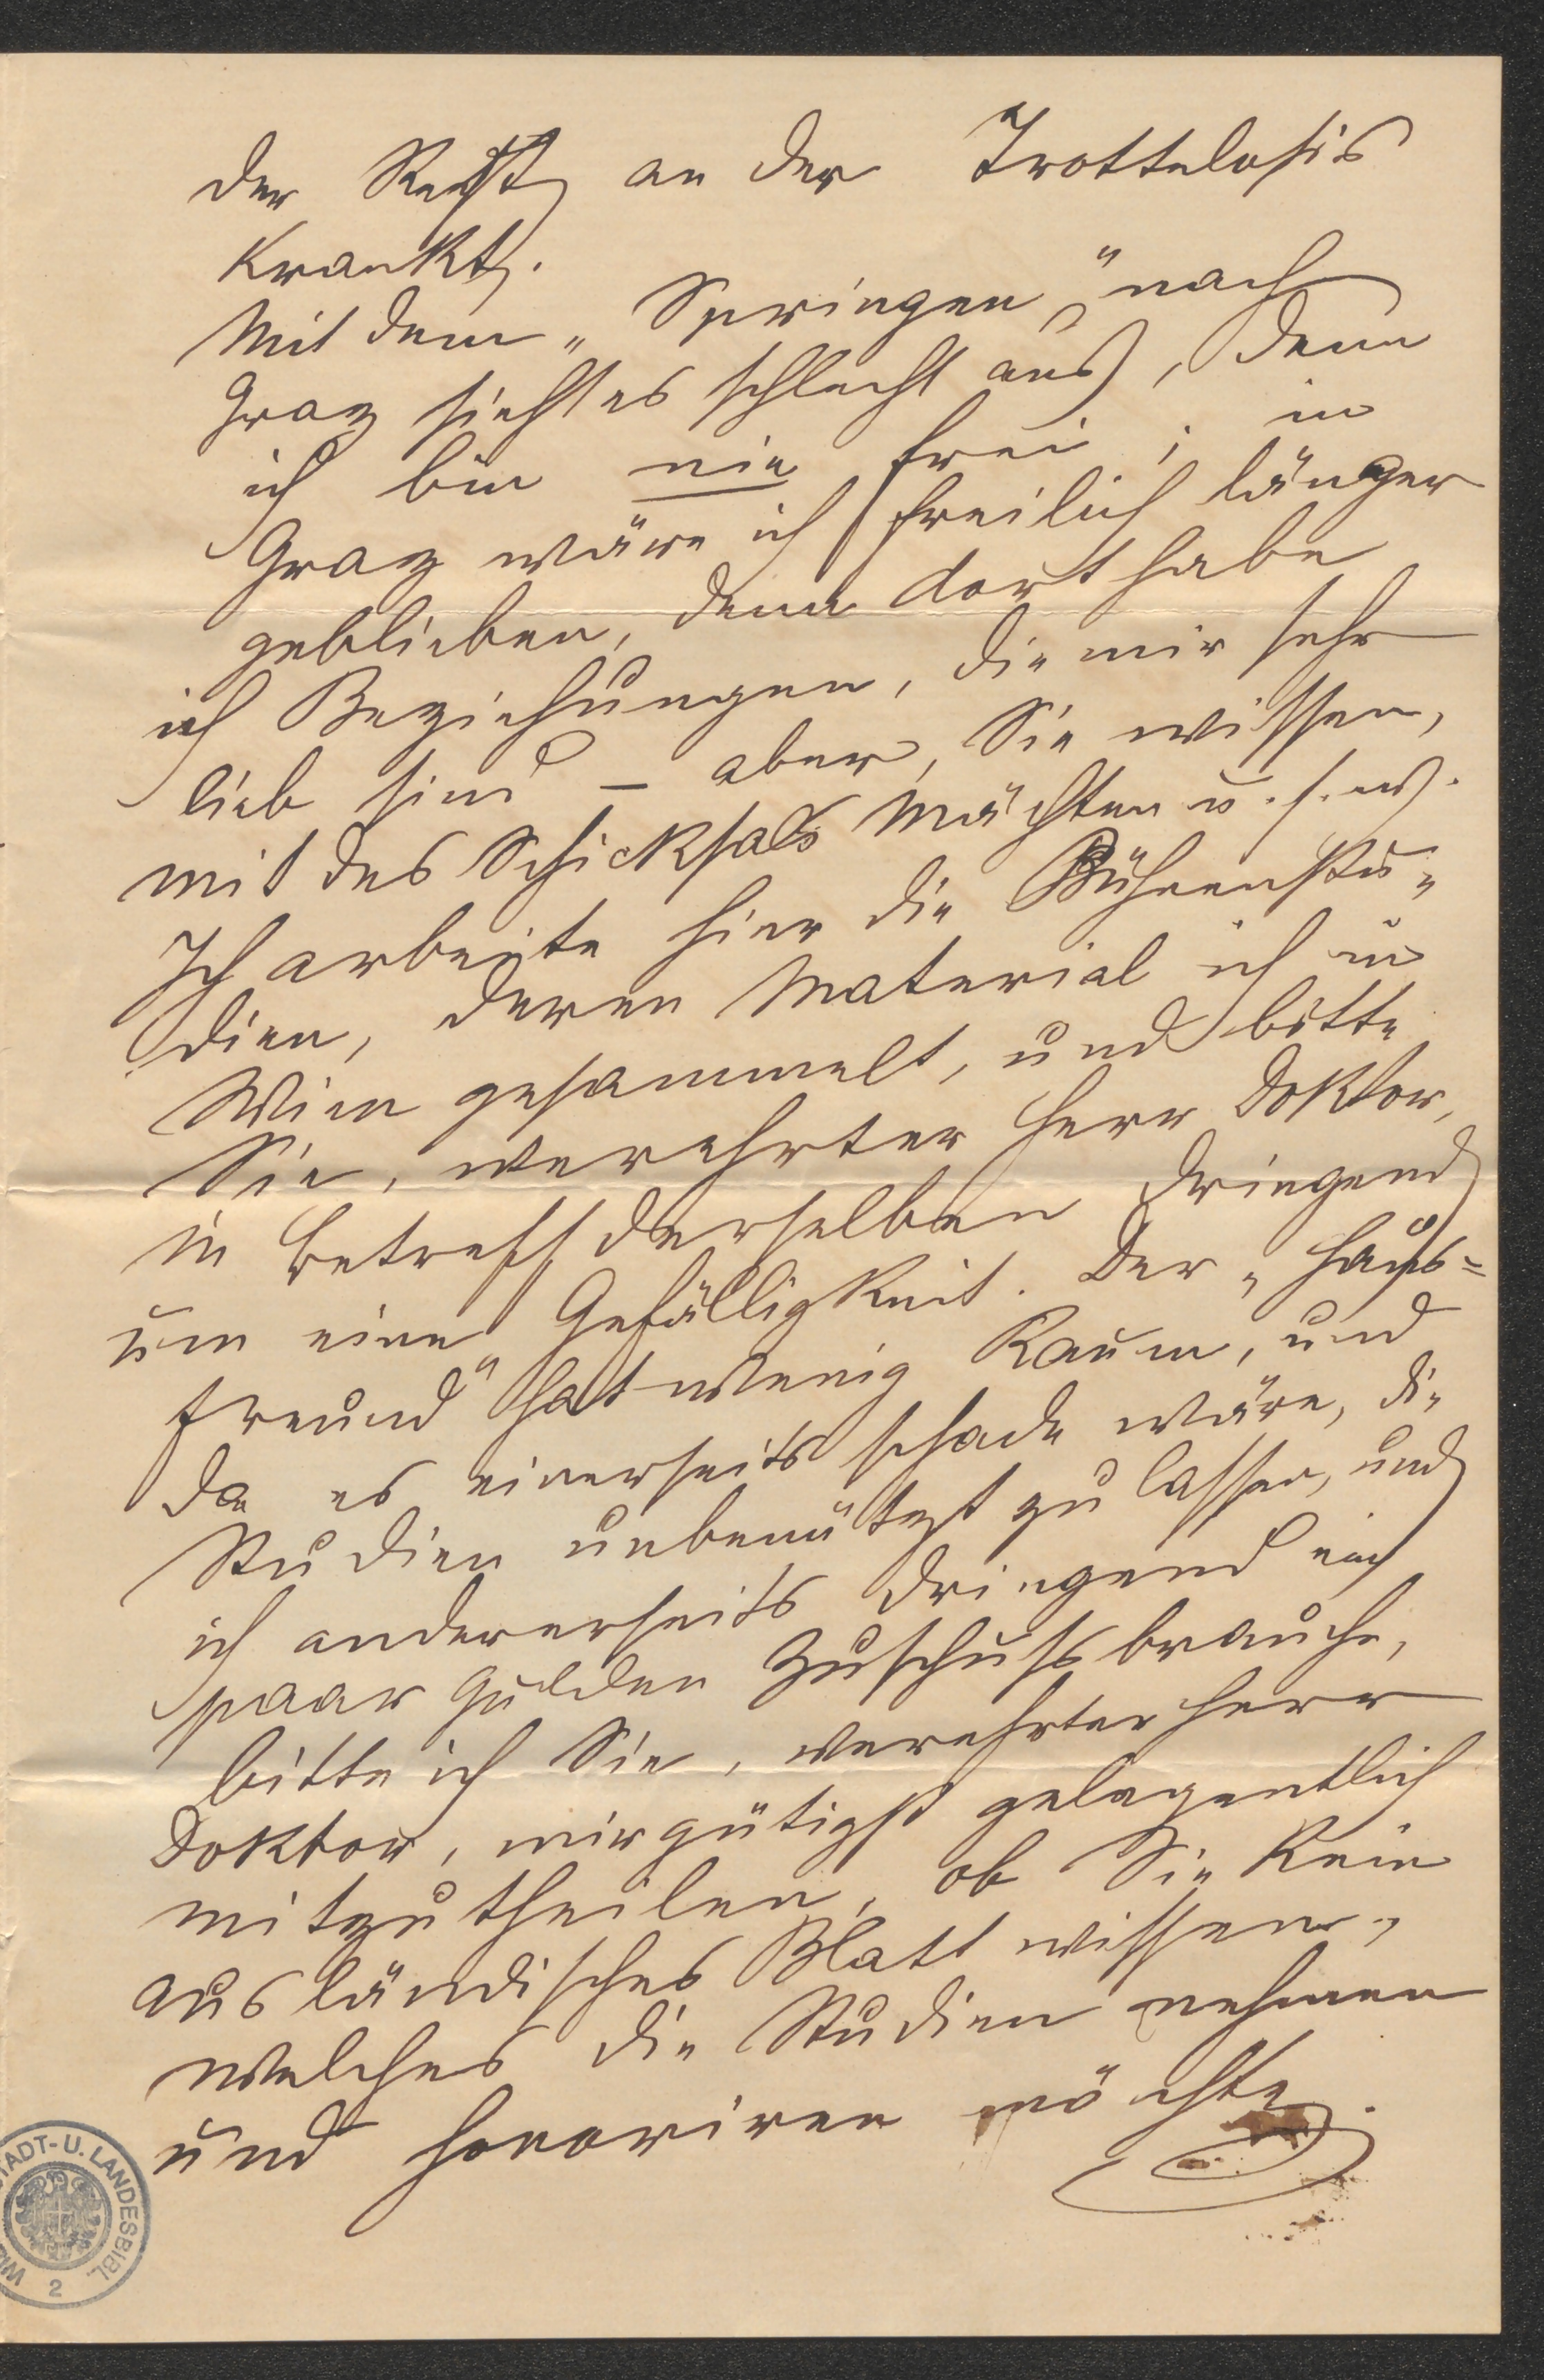 der Rest an der Trottelosis
krankt.
Mit dem „Springen" nach
Graz sieht es schlecht aus, denn
ich bin nie frei; in
Graz wäre ich freilich länger
geblieben, denn dort habe
ich Beziehungen, die mir sehr
lieb sind – aber, Sie wissen,
mit des Schicksals Mächten u. s. w.
Ich arbeite hier die Bühnenstu„
dien, deren Material ich in
Wien gesammelt, und bitte
Sie, verehrter Herr Doktor,
in Betreff derselben dringend
um eine Gefälligkeit. Der „Haus=
freund" hat wenig Raum, und
da es einerseits schade wäre, die
Studien unbenützt zu lassen, und
ich andererseits dringend ein
paar Gulden Zuschuss brauche,
bitte ich Sie, verehrter Herr
Doktor, mir gütigst gelegentlich
mitzutheilen, ob Sie kein
ausländisches Blatt wissen,
welches die Studien nehmen
und honoriren möchte.
STADT-U. LANDESBIBL.
2